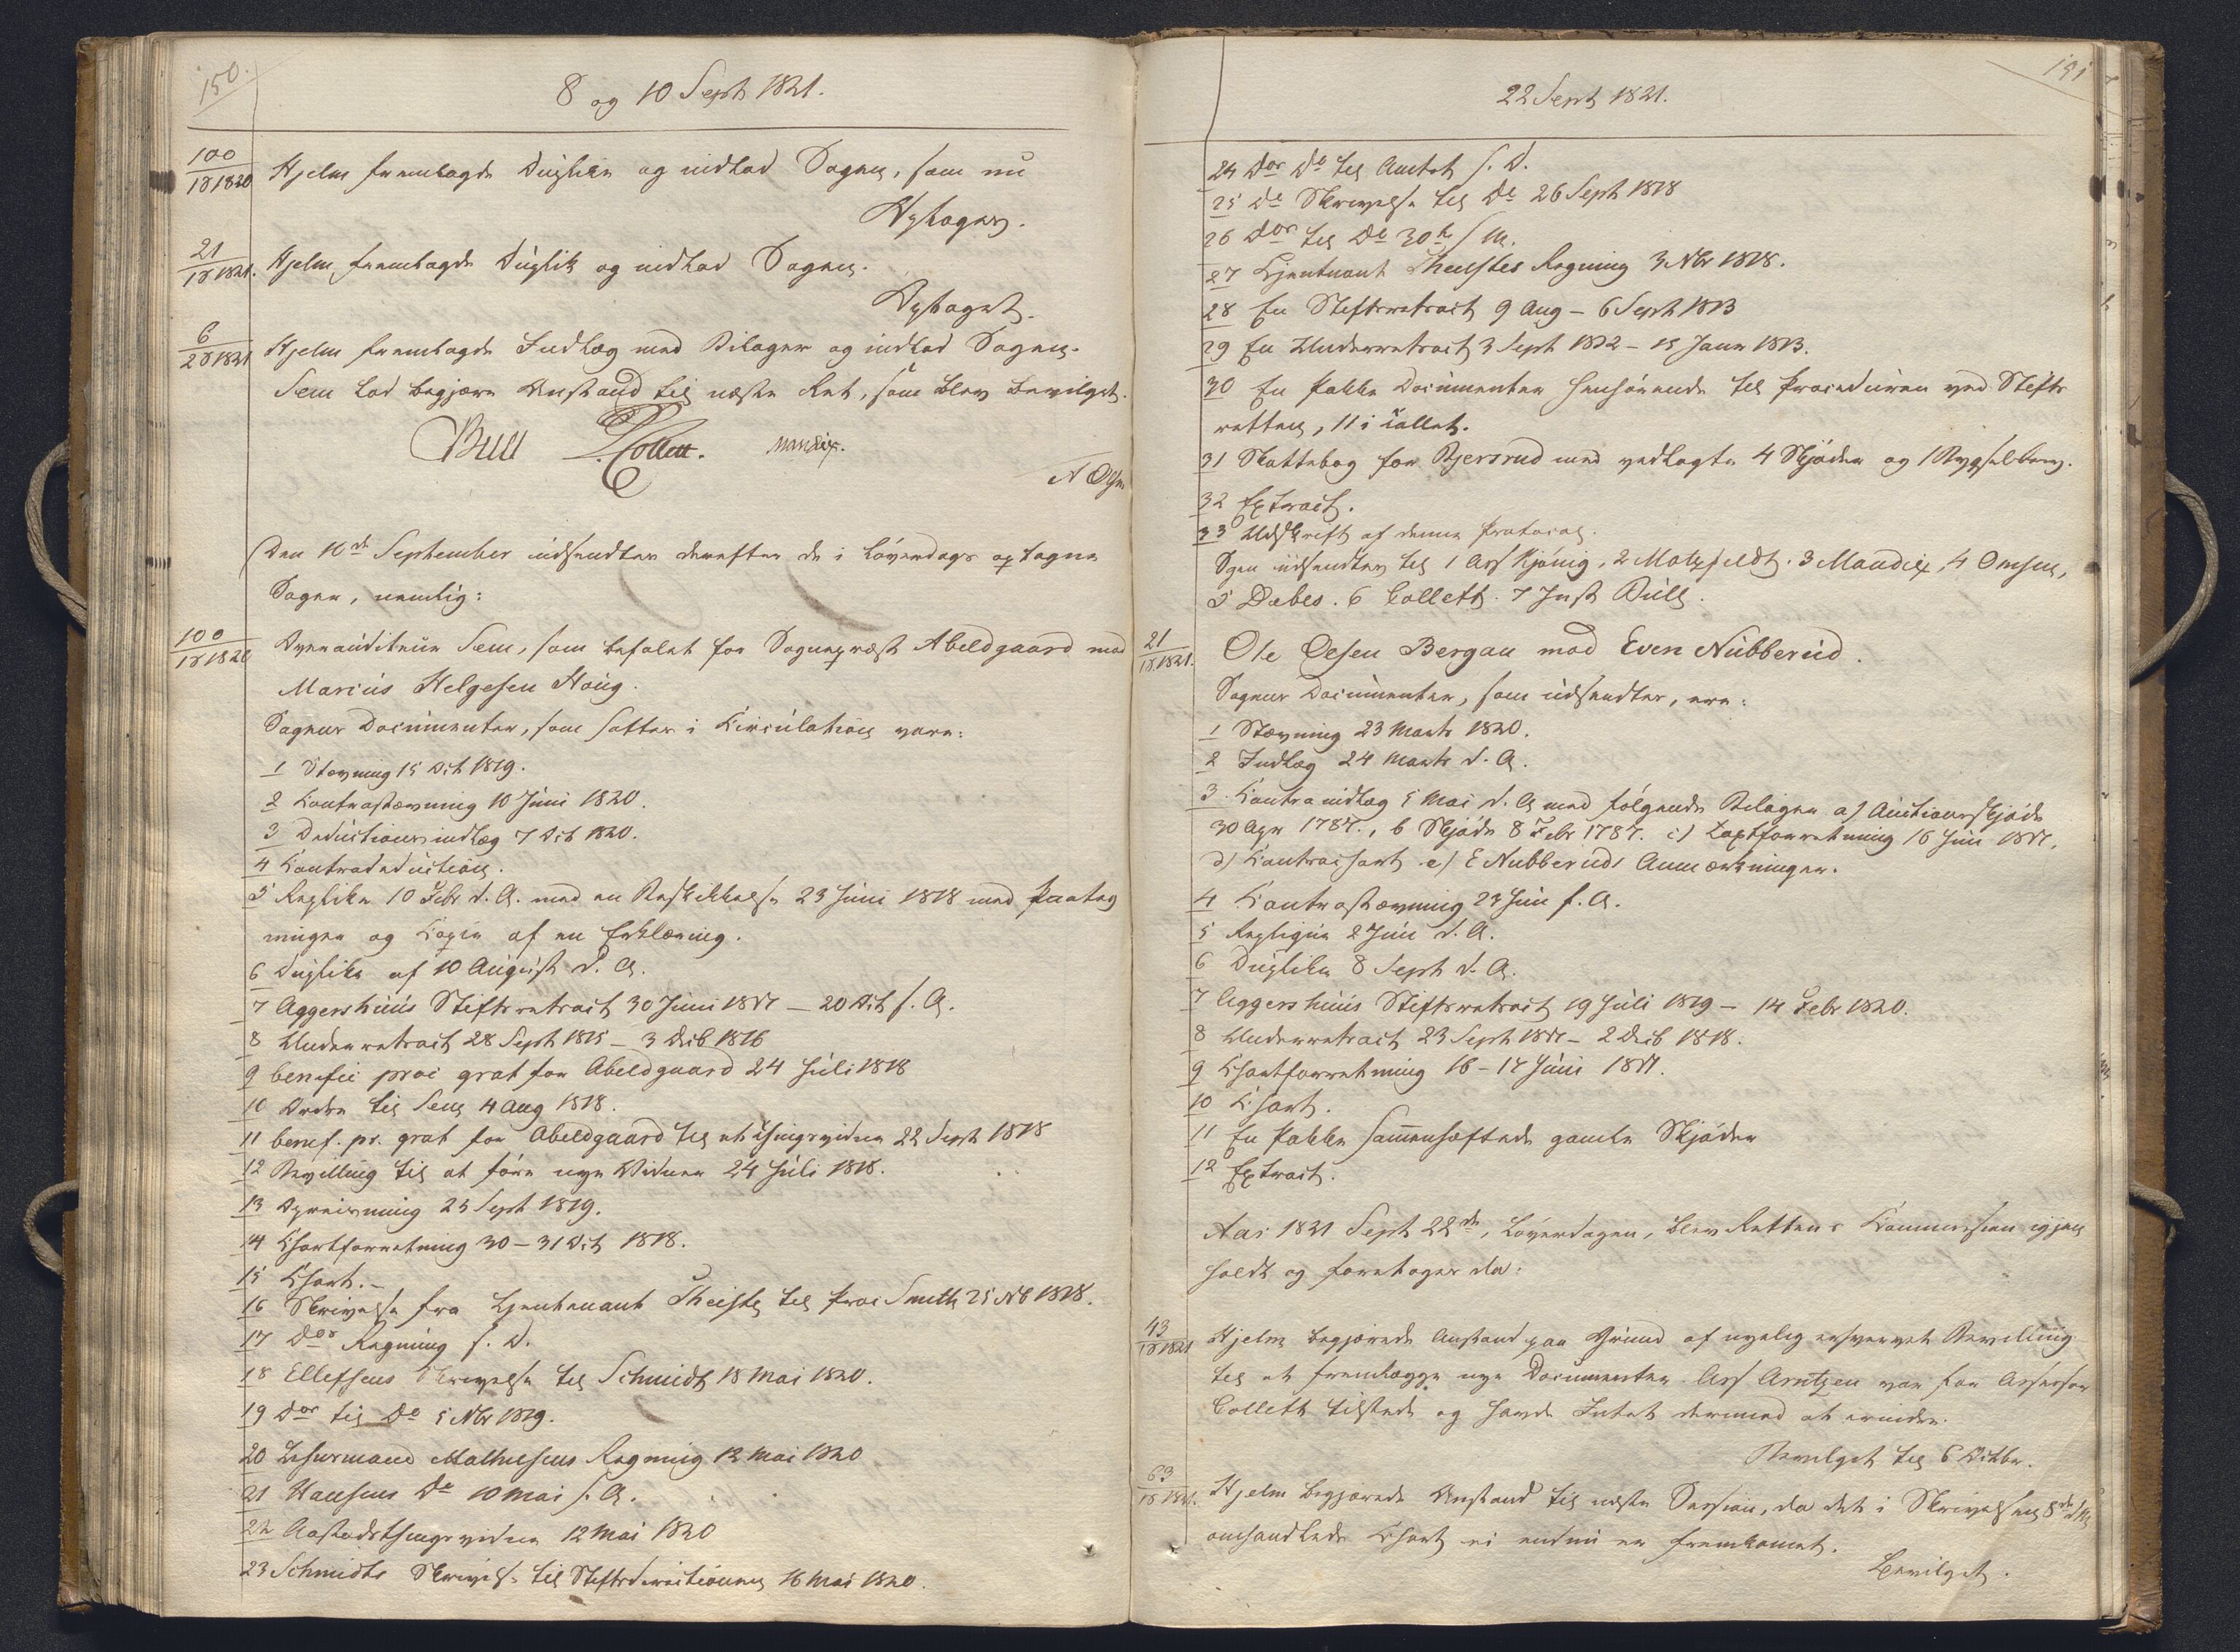 150.
8 og 10 Sept 1821.
100
18 1820
Hjelm fremlagde Duplikk og indlod Sagen, som nu
Optages.
21
18 1821.
Hjelm fremlagde Duplik og indlod Sagen.
Optaget.
6
28 1821
Hjelm fremlagde Indlæg med Bilager og indlod Sagen.
Sem lod begjære Anstand til næste Ret, som blev bevilget.
Bull Collett. Mandix.
Den 10de September udsendtes derefter de i Løverdags optagne
Sager, nemlig:
100
18 1820
Overauditeur Sem, som befalet for Sognepræst Abeldgaard mod
Marcus Helgesen Houg.
Sagens Documenter, som sattes i Circulation vare:
1 Stevning 15 Oct 1819.
2 Contrastævning 10 Juni 1820.
3 Deductionsindlæg 7 Oct 1820.
4 Contradeduction.
5 Replikk 10 Febr d. A. med en Beskikkelse 23 Juni 1818 med Paateg
ninger og Copie af en Erklæring.
6 Duplikk af 10 August d. A.
7 Aggershuus Stiftsretsact 30 Juni 1817 – 20 Oct s. A.
8 Underretsact 28 Sept 1815 – 3 Decb 1816
9 benefic proc grat for Abeldgaard 24 Juli 1818
10 Ordre til Sem 4 Aug 1818.
11 benef. pr. grat for Abeldgaard til et Thingsvidne 22 Sept 1818
12 Bevilling til at føre nye Vidner 24 Juli 1818.
13 Opreisning 25 Sept 1819.
14 Chartforretning 30 – 31 Oct 1818.
15 Chart.
16 Skrivelse fra Lieutenant Theiste til Proc Smith 25 Nb 1818.
17 Dos Regning s. D.
18 Ellefsens Skrivelse til Schmidt 18 Mai 1820.
19 Dos til Do 5 Nbr 1819.
20 Lehnsmand Mathiesens Regning 12 Mai 1820
21 Hansens Do 10 Mai s. A.
22 Aastedsthingsvidne 12 Mai 1820
23 Schmidts Skrivelse til Stiftsdirectionen 16 Mai 1820.
151
22 Sept 1821.
24 Dos Do til Amtet s. D.
25 Do Skrivelse til Do 26 Sept 1818
26 Dos til Do 30te s M.
27 Lieutnant Theistes Regning 3 Nbr 1818.
28 En Stiftsretsact 9 Aug – 6 Sept 1813
29 En Underretsact 3 Sept 1812 – 15 Janr 1813.
30 En Pakke Documenter henhørende til Proceduren ved Stifts
retten, 11 i Tallet.
31 Skattebog for Bjersrud med vedlagte 4 Skjøder og 1 Bygselbrev.
32 Extract.
33 Udskrift af denne Protocol.
Sagen udsendtes til 1 Ass Kjønig, 2 Motzfeldt. 3 Mandix, 4 Omsen,
5 Debes. 6 Collett. 7 Just Bull.
21
18 1821.
Ole Olsen Bergan mod Even Nubberud.
Sagens Documenter, som udsendtes, ere:
1 Stævning 23 Marts 1820.
2 Indlæg 24 Marts d. A.
3 Contraindlæg 5 Mai d. A med følgende Bilager a) Auctionsskjøde
30 Apr 1787., b Skjøde 8 Febr 1787. c) Taxtforretning 16 Jun 1817,
d) Contrachart e) E Nubberuds Anmærkninger.
4 Contrastævning 23 Jun s. A.
5 Repliqve 2 Juni d. A.
6 Duplikk 8 Sept d. A.
7 Aggershuus Stiftsretsact 19 Juli 1819 – 14 Febr 1820.
8 Underretsact 23 Sept 1817 – 2 Decb 1818.
9 Chartforretning 16 – 17 Juni 1817.
10 Chart.
11 En Pakke sammenhæftede gamle Skjøder
12 Extract.
Aar 1821 Sept 22de, Løverdagen, blev Rettens Commission igjen
holdt og foretoges da:
43
18 1821
Hjelm begjærede Anstand paa Grund af nyelig erhvervet Bevilling
til at fremlægge nye Documenter. Ass Arntzen var for Assessor
Collett tilstede og havde Intet dermod at erindre.
Bevilget til 6 Octbr.
63
18 1821.
Hjelm begjærede Anstand til næste Session, da det i Skrivelsen 8de d M
omhandlede Chart ei endnu er fremkomet.
Bevilget.